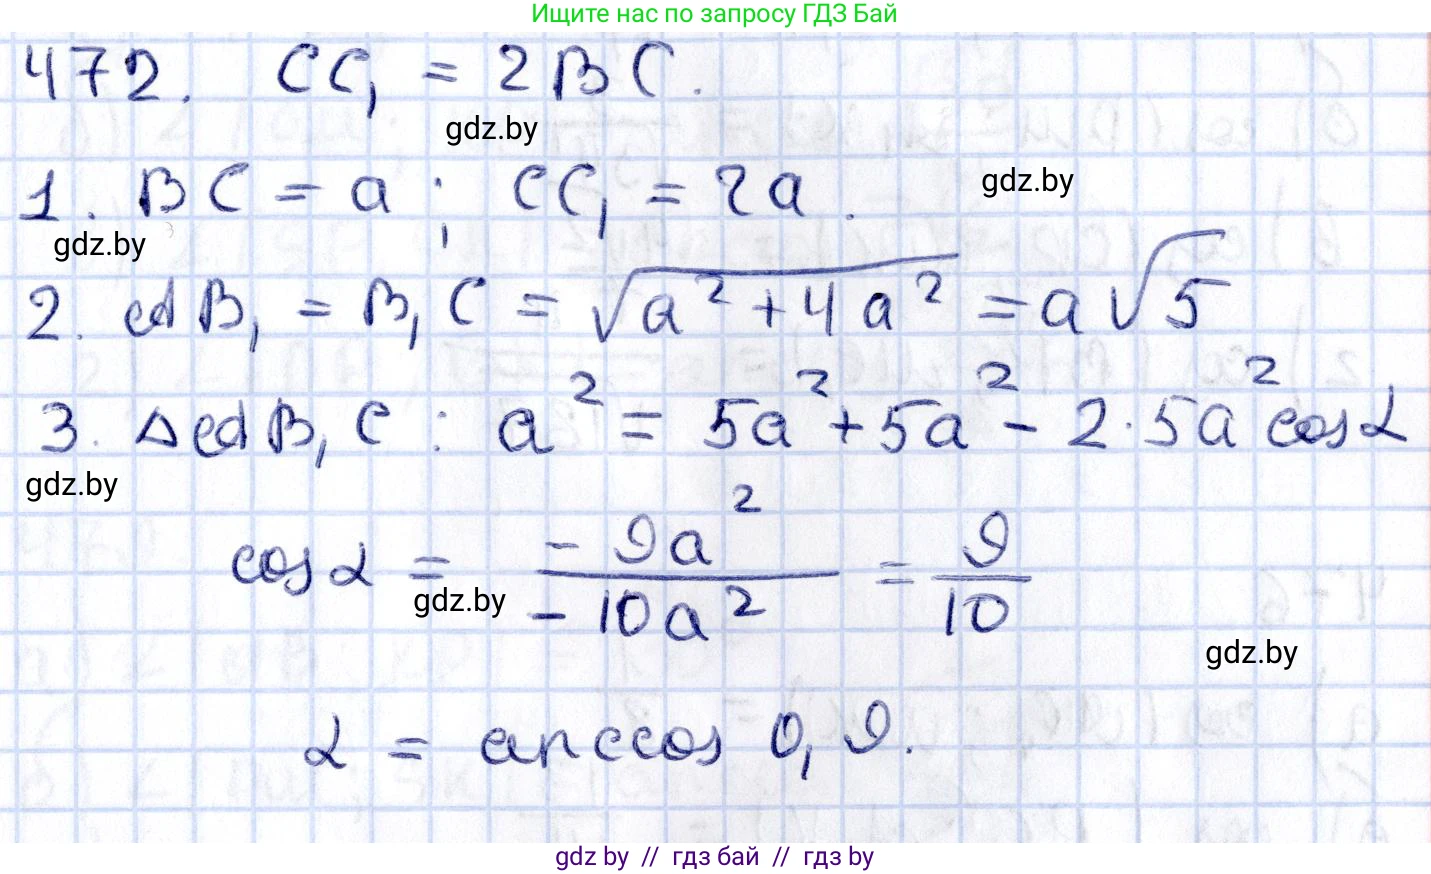 Ищите нас по запросу ГДЗ Бай
472. CC₁ = 2BC.
gdz.by
1. BC = a; CC₁ = 2a.
gdz.by
gdz.by
2. AB₁ = B₁C = √(a² + 4a²) = a√5
3. ΔAB₁C: a² = 5a² + 5a² - 2·5a² cosα
gdz.by
cosα = -9a² / -10a² = 9/10
gdz.by
gdz.by
α = arccos 0,9.
gdz by // гдз бай // гдз by